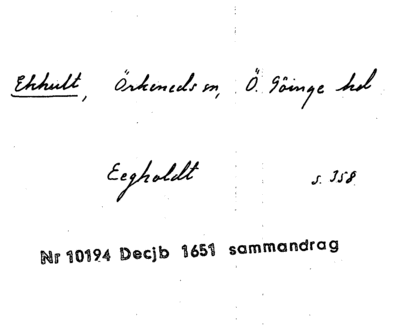 Ekhult, Örkeneds sn, Ö. Göinge hd
Eegholdt s. 358
Nr 10194 Decjb 1651 sammandrag